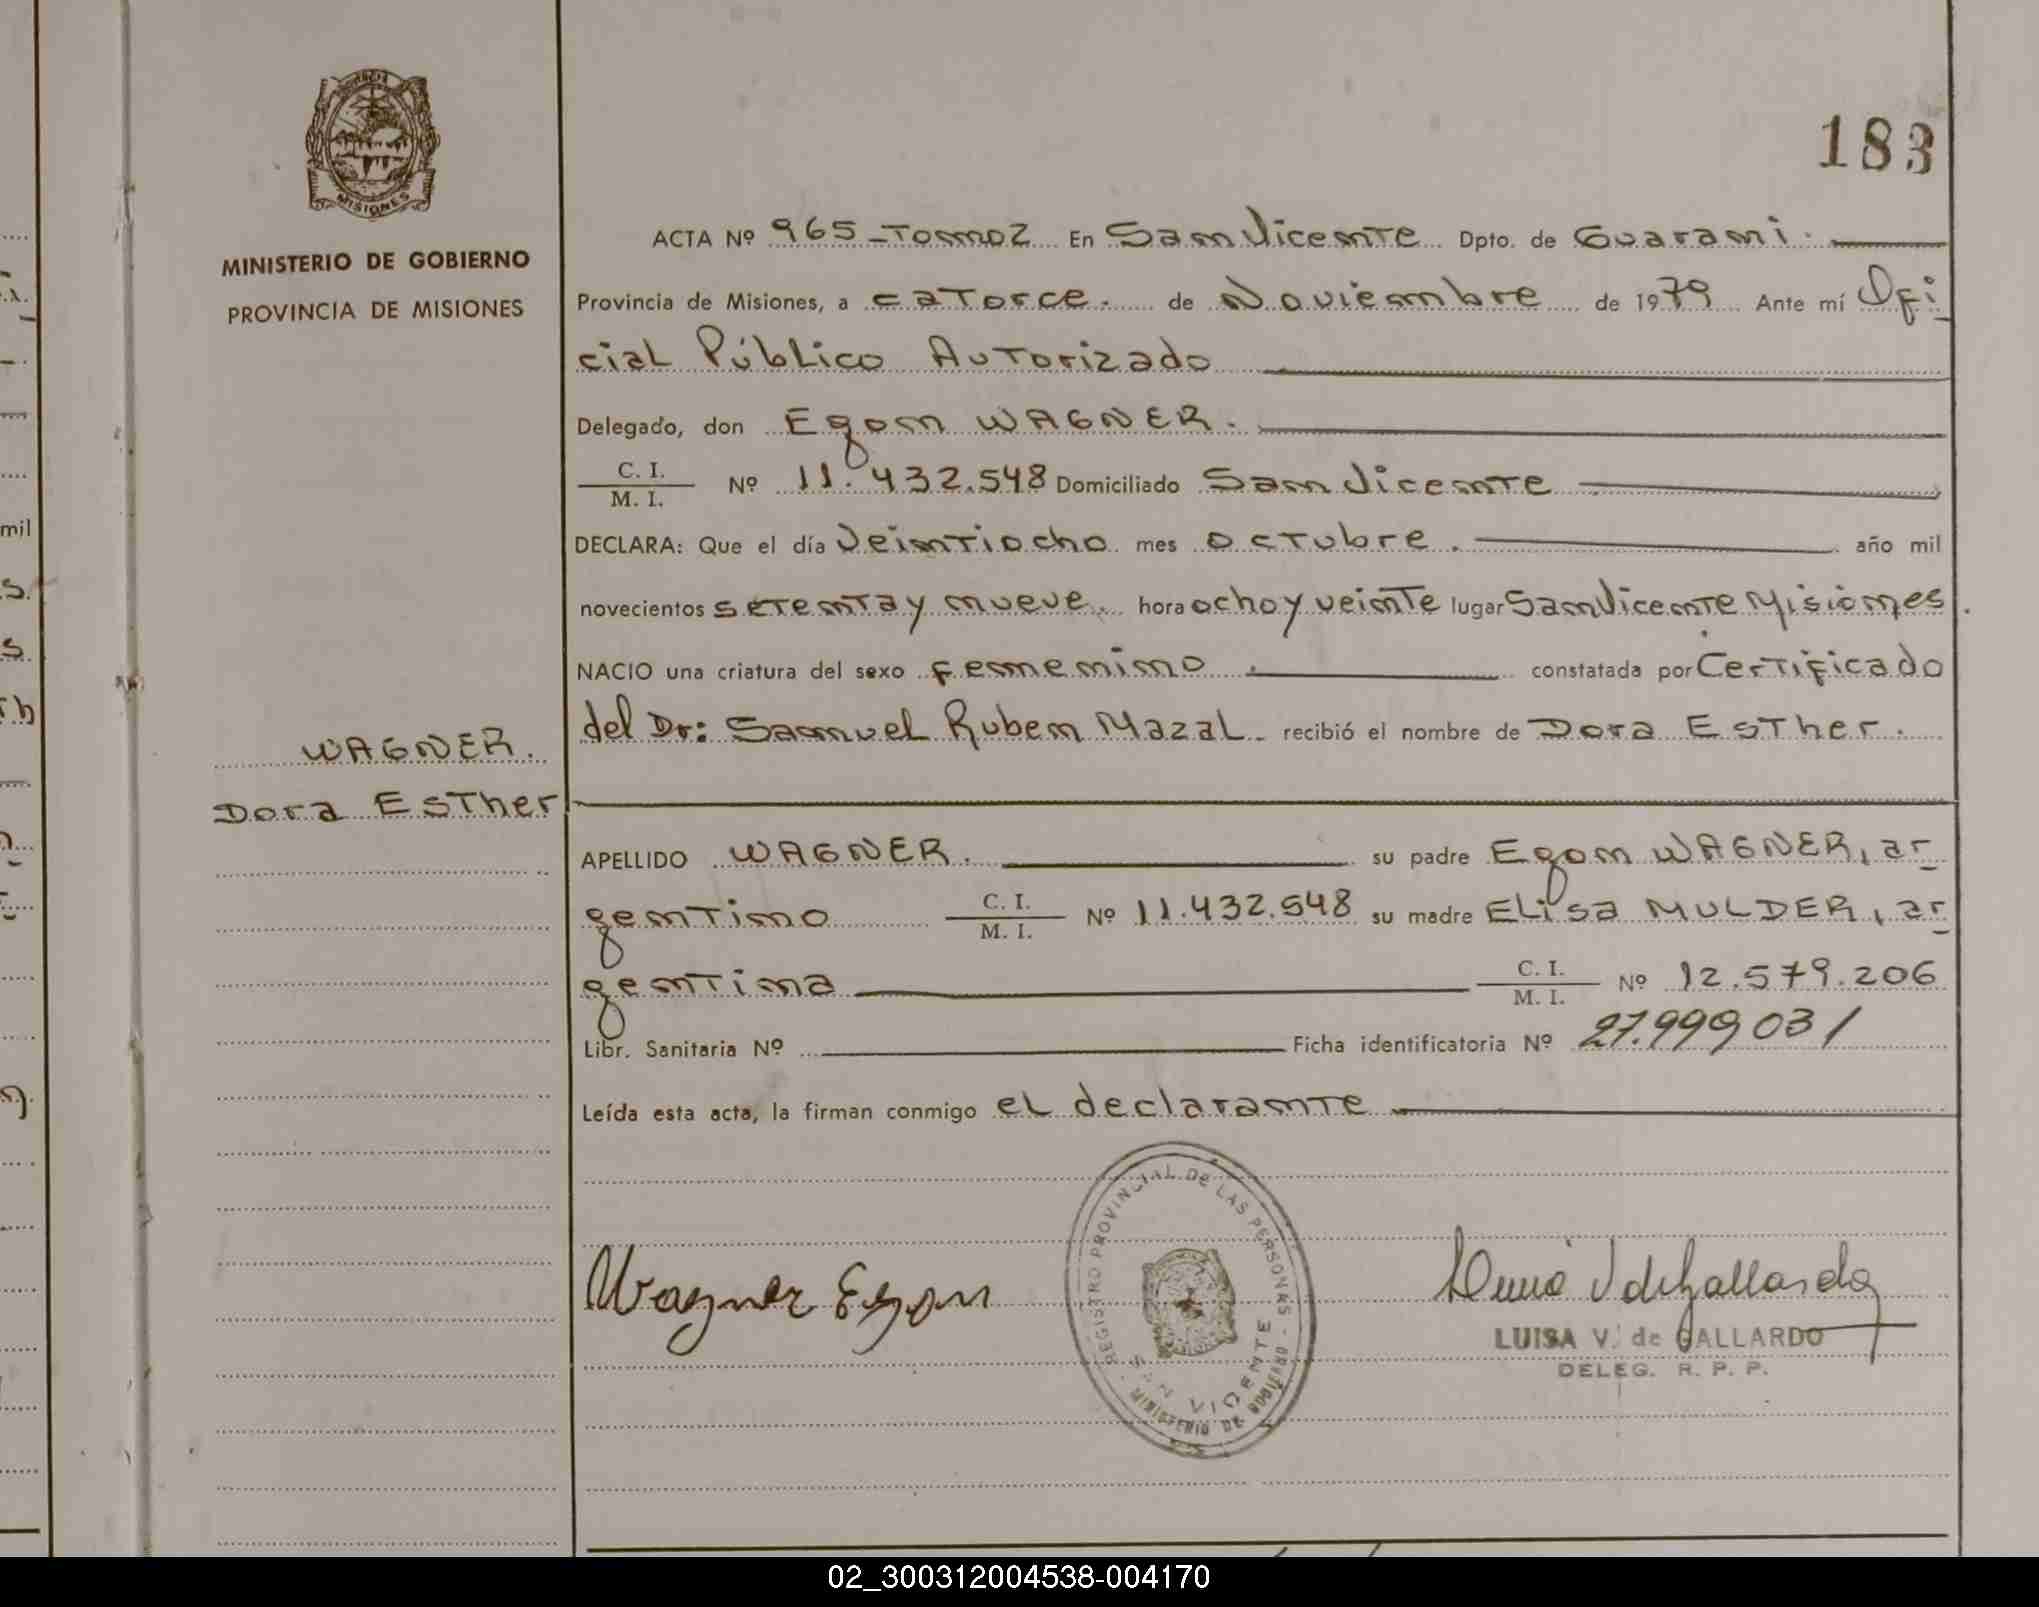 183
MISIONES
MINISTERIO DE GOBIERNO
PROVINCIA DE MISIONES
WAGNER.
Dora Esther
ACTA Nº 965-Tomo 2 En San Vicente Dpto. de Guarani.
Provincia de Misiones, a catorce. de Noviembre de 1979 Ante mí Ofi
cial Público Autorizado
Delegado, don Egon WAGNER.
C. I.
M. I. Nº 11.432.548 Domiciliado San Vicente
DECLARA: Que el día Veintiocho mes octubre. año mil
novecientos setenta y nueve. hora ocho y veinte lugar San Vicente Misiones.
NACIO una criatura del sexo femenino. constatada por Certificado
del Dr: Samuel Ruben Mazal recibió el nombre de Dora Esther.
APELLIDO WAGNER. su padre Egon WAGNER, ar
gentino C. I. M. I. Nº 11.432.548 su madre Elisa MULDER, ar
gentina C. I. M. I. Nº 12.579.206
Libr. Sanitaria Nº Ficha identificatoria Nº 27.999,031
Leída esta acta, la firman conmigo el declarante
Wagner Egon
REGISTRO PROVINCIAL DE LAS PERSONAS - MINISTERIO DE GOBIERNO -
SAN VICENTE
LUISA V. de GALLARDO
DELEG. R. P. P.
mil
02_300312004538-004170